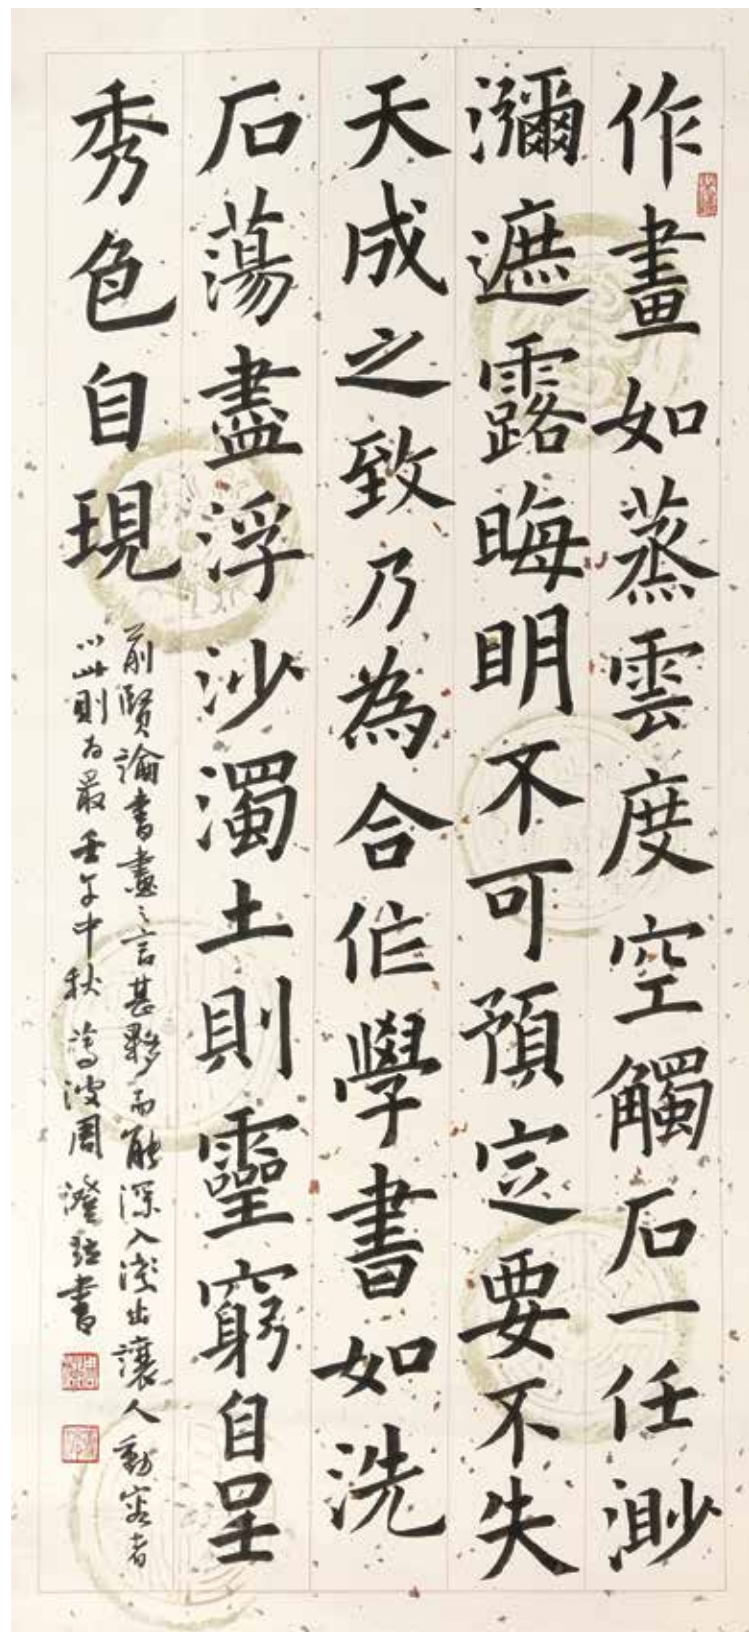 作畫如蒸雲度空觸石一任渺
瀰遮露晦明不可預定要不失
天成之致乃為合作學書如洗
石蕩盡浮沙濁土則靈窮自呈
秀色自現
前賢論書畫之言甚夥而能深入淺出讓人動容者
以此則為最壬午中秋 周澄 書